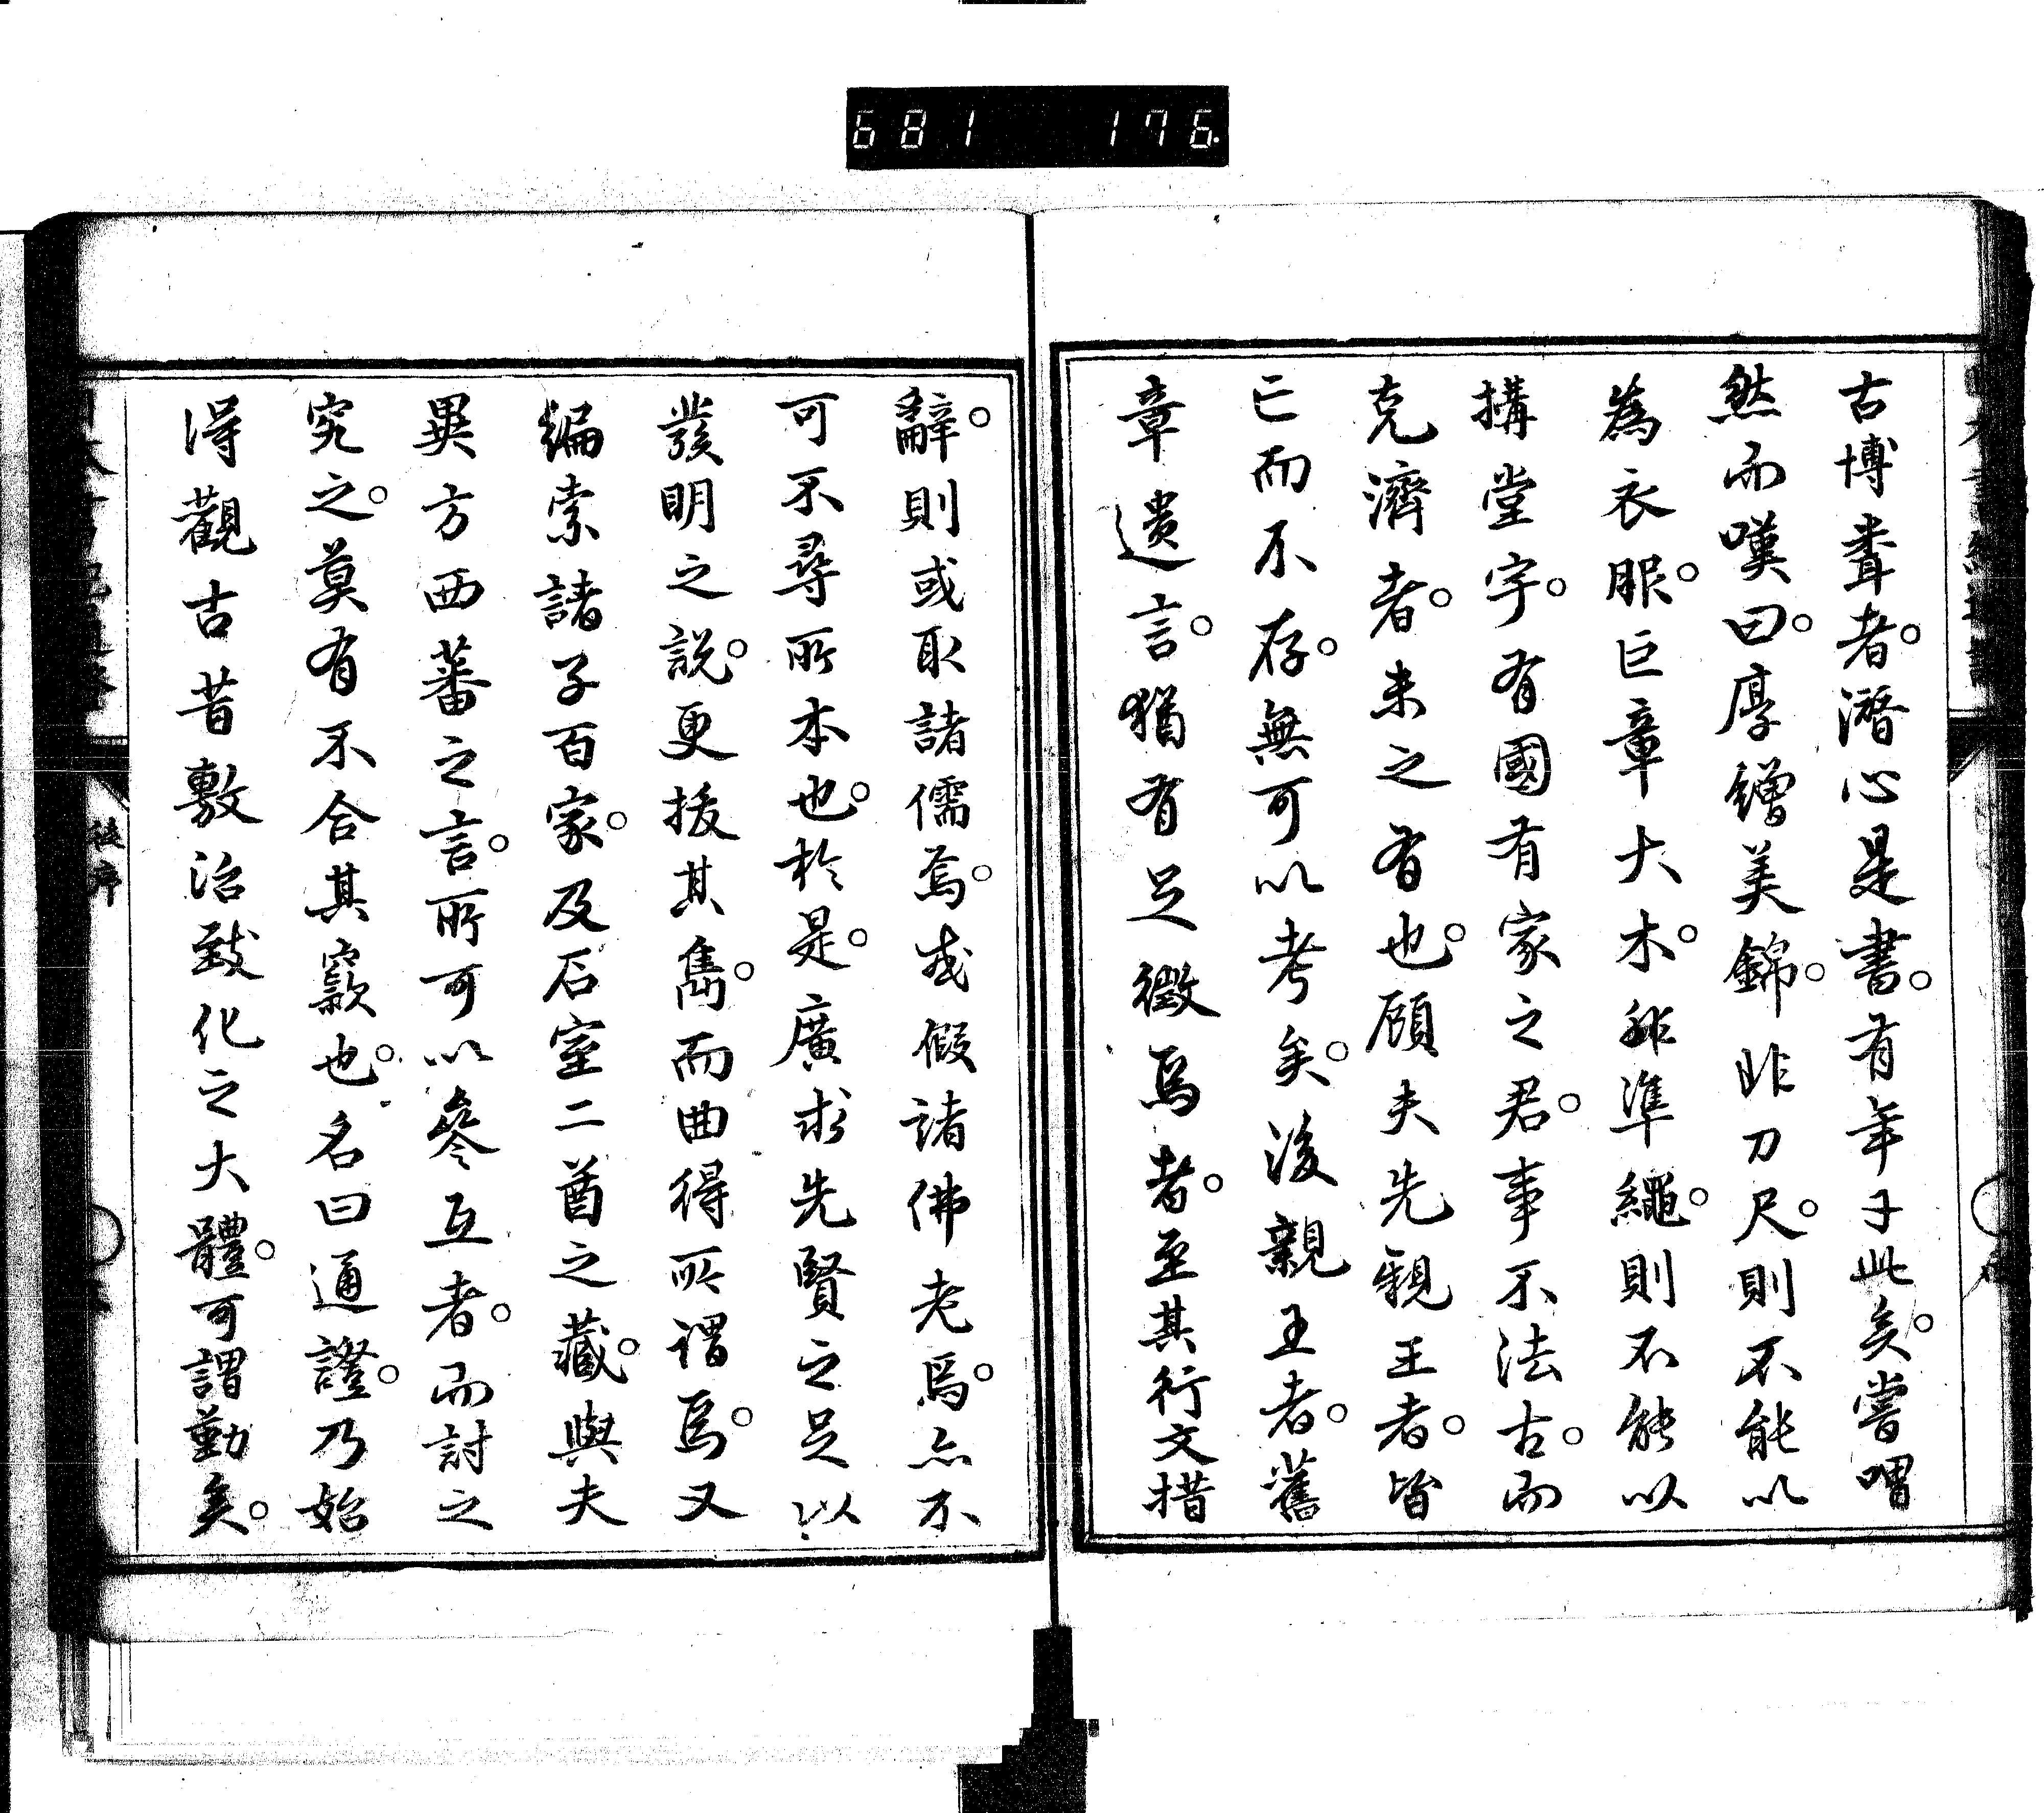 681 176
古博聾者。潛心是書。有年于此矣。嘗喟
然而嘆曰。厚繒美錦。非刀尺。則不能以
為衣服。巨章大木。非準繩。則不能以
搆堂宇。有國有家之君。事不法古。而
克濟者。未之有也。顧夫先親王者。皆
亡而不存。無可以考矣。後親王者。舊
章遺言。猶有足徵焉者。至其行文措
辭。則或取諸儒焉。或假諸佛老焉。亦不
可不尋所本也。於是。廣求先賢之足以
發明之說。更援其雋。而曲得所謂焉。又
編索諸子百家。及石室二酋之藏。與夫
異方西蕃之言。所可以參互者。而討之
究之。莫有不合其窾也。名曰通證。乃始
得觀古昔敷治致化之大體。可謂勤矣。
後序